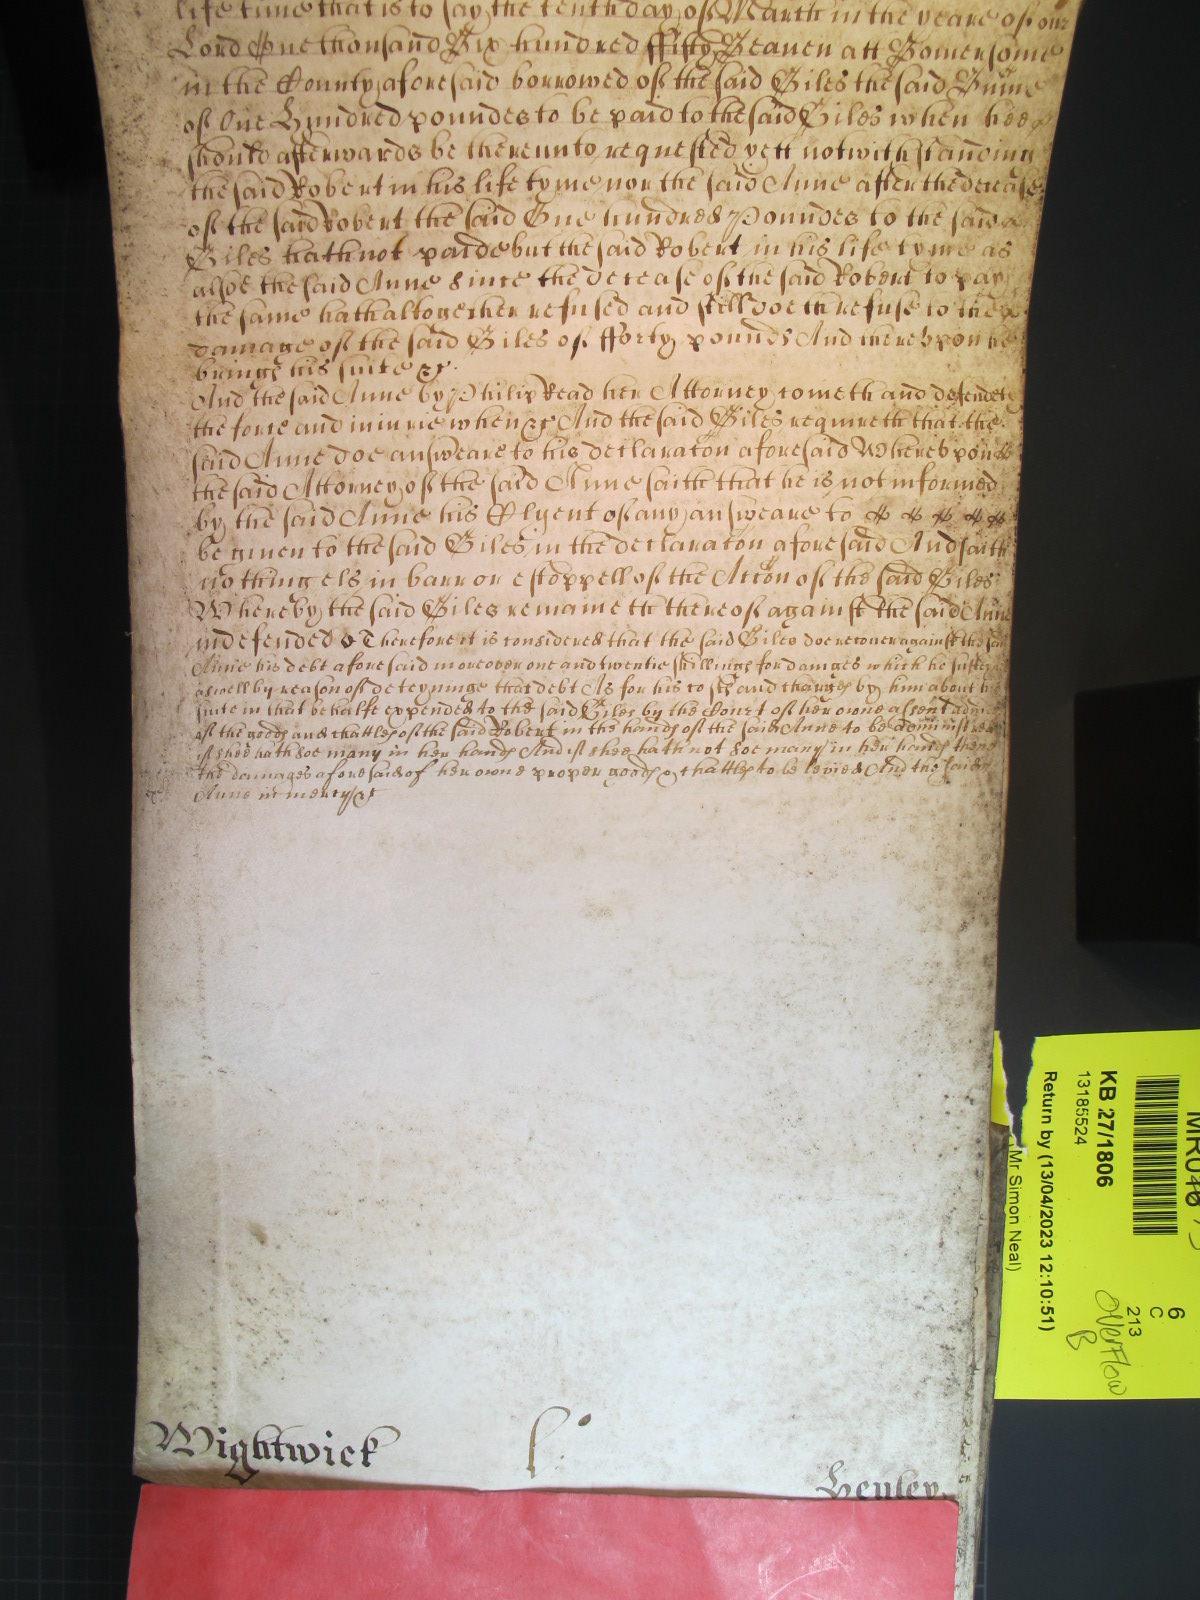 life time that is to say the tenth day of March in the yeare of our
Lord One thousand Six hundred ffifty Seaven att Bomersome
in the County aforesaid borrowed of the said Giles the said Summe
of One Hundred poundes to be paid to the said Giles when hee
should afterwards be thereunto requested yett notwithstanding
the said Robert in his life tyme nor the said Anne after the decease
of the said Robert the said One hundred Poundes to the said
Giles hath not paide but the said Robert in his life tyme as
alsoe the said Anne since the decease of the said Robert to pay
the same hath altogether refused and still doeth refuse to the
damage of the said Giles of fforty pounds And thereupon he
brings his suite &c.
And the said Anne by Philip Read her Attorney cometh and defendeth
the force and iniurie when &c And the said Giles requireth that the
said Anne doe answeare to his declaracon aforesaid Whereupon
the said Attorney of the said Anne saith that he is not informed
by the said Anne his Clyent of any answeare to
be given to the said Giles in the declaracon aforesaid And saith
nothing els in barr or estoppell of the Accon of the said Giles
Whereby the said Giles remaineth thereof against the said Anne
undefended Therefore it is considered that the said Giles doe recover against the said
Anne his debt aforesaid moreover one and twentie shillings for damages which he
aswell by reason of deteyninge that debt As for his costs and charges by him about his
suite in that behalfe expended to the said Giles by the Court of her owne assent
of the goods and chattles of the said Robert in the hands of the said Anne to be
if shee hath soe many in her hands And if shee hath not soe many in her hands then
the damages aforesaid of her owne proper goods & chattles to be levied And the said
Anne in mercy &c
Wightwick
Henley
MR046
6
C
213
Overflow
B
KB 27/1806
13185524
Return by (13/04/2023 12:10:51)
Mr Simon Neal)